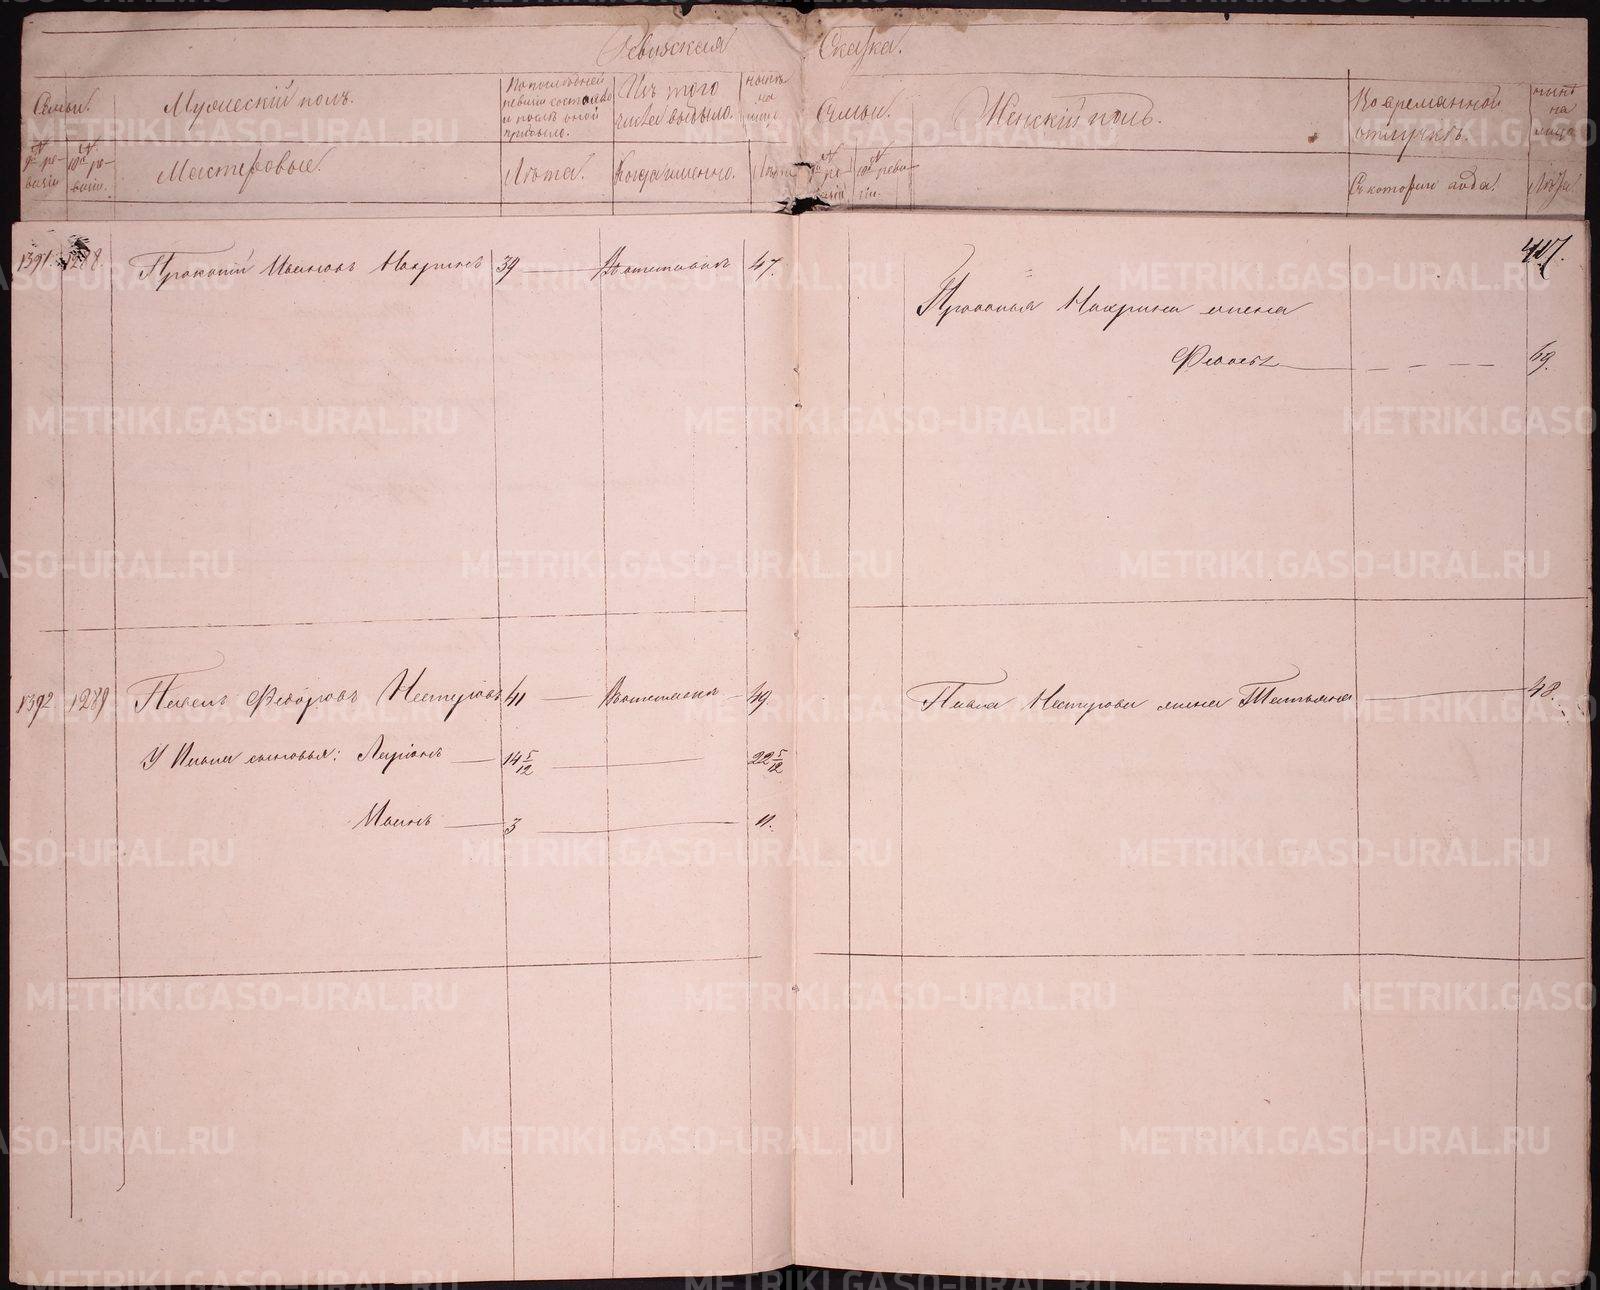 Ревизская Сказка.
Семьи. Мужескій полъ. По последней ревизіи состояло и после оной прибыло. Изъ того числа выбыло. ныне на лицо Семьи. Женскій полъ. Во временной отлучкѣ. ныне на лицо
№ 9й ревизіи № 10й ревизіи. Мастеровые. Лета. Когда именно. Лета № 9й ревизіи № 10й ревизіи. Съ котораго года. Лета.
417.
1391. 1288. Прокопій Ивановъ 39 47.
жена
69.
1392 1289 Павелъ Федоровъ Нестуровъ 41 49 Павла Нестурова жена Татьяна 48.
У Павла сыновья: Ларіонъ 14 5/12 22 5/12
Иванъ 3 11.
METRIKI.GASO-URAL.RU